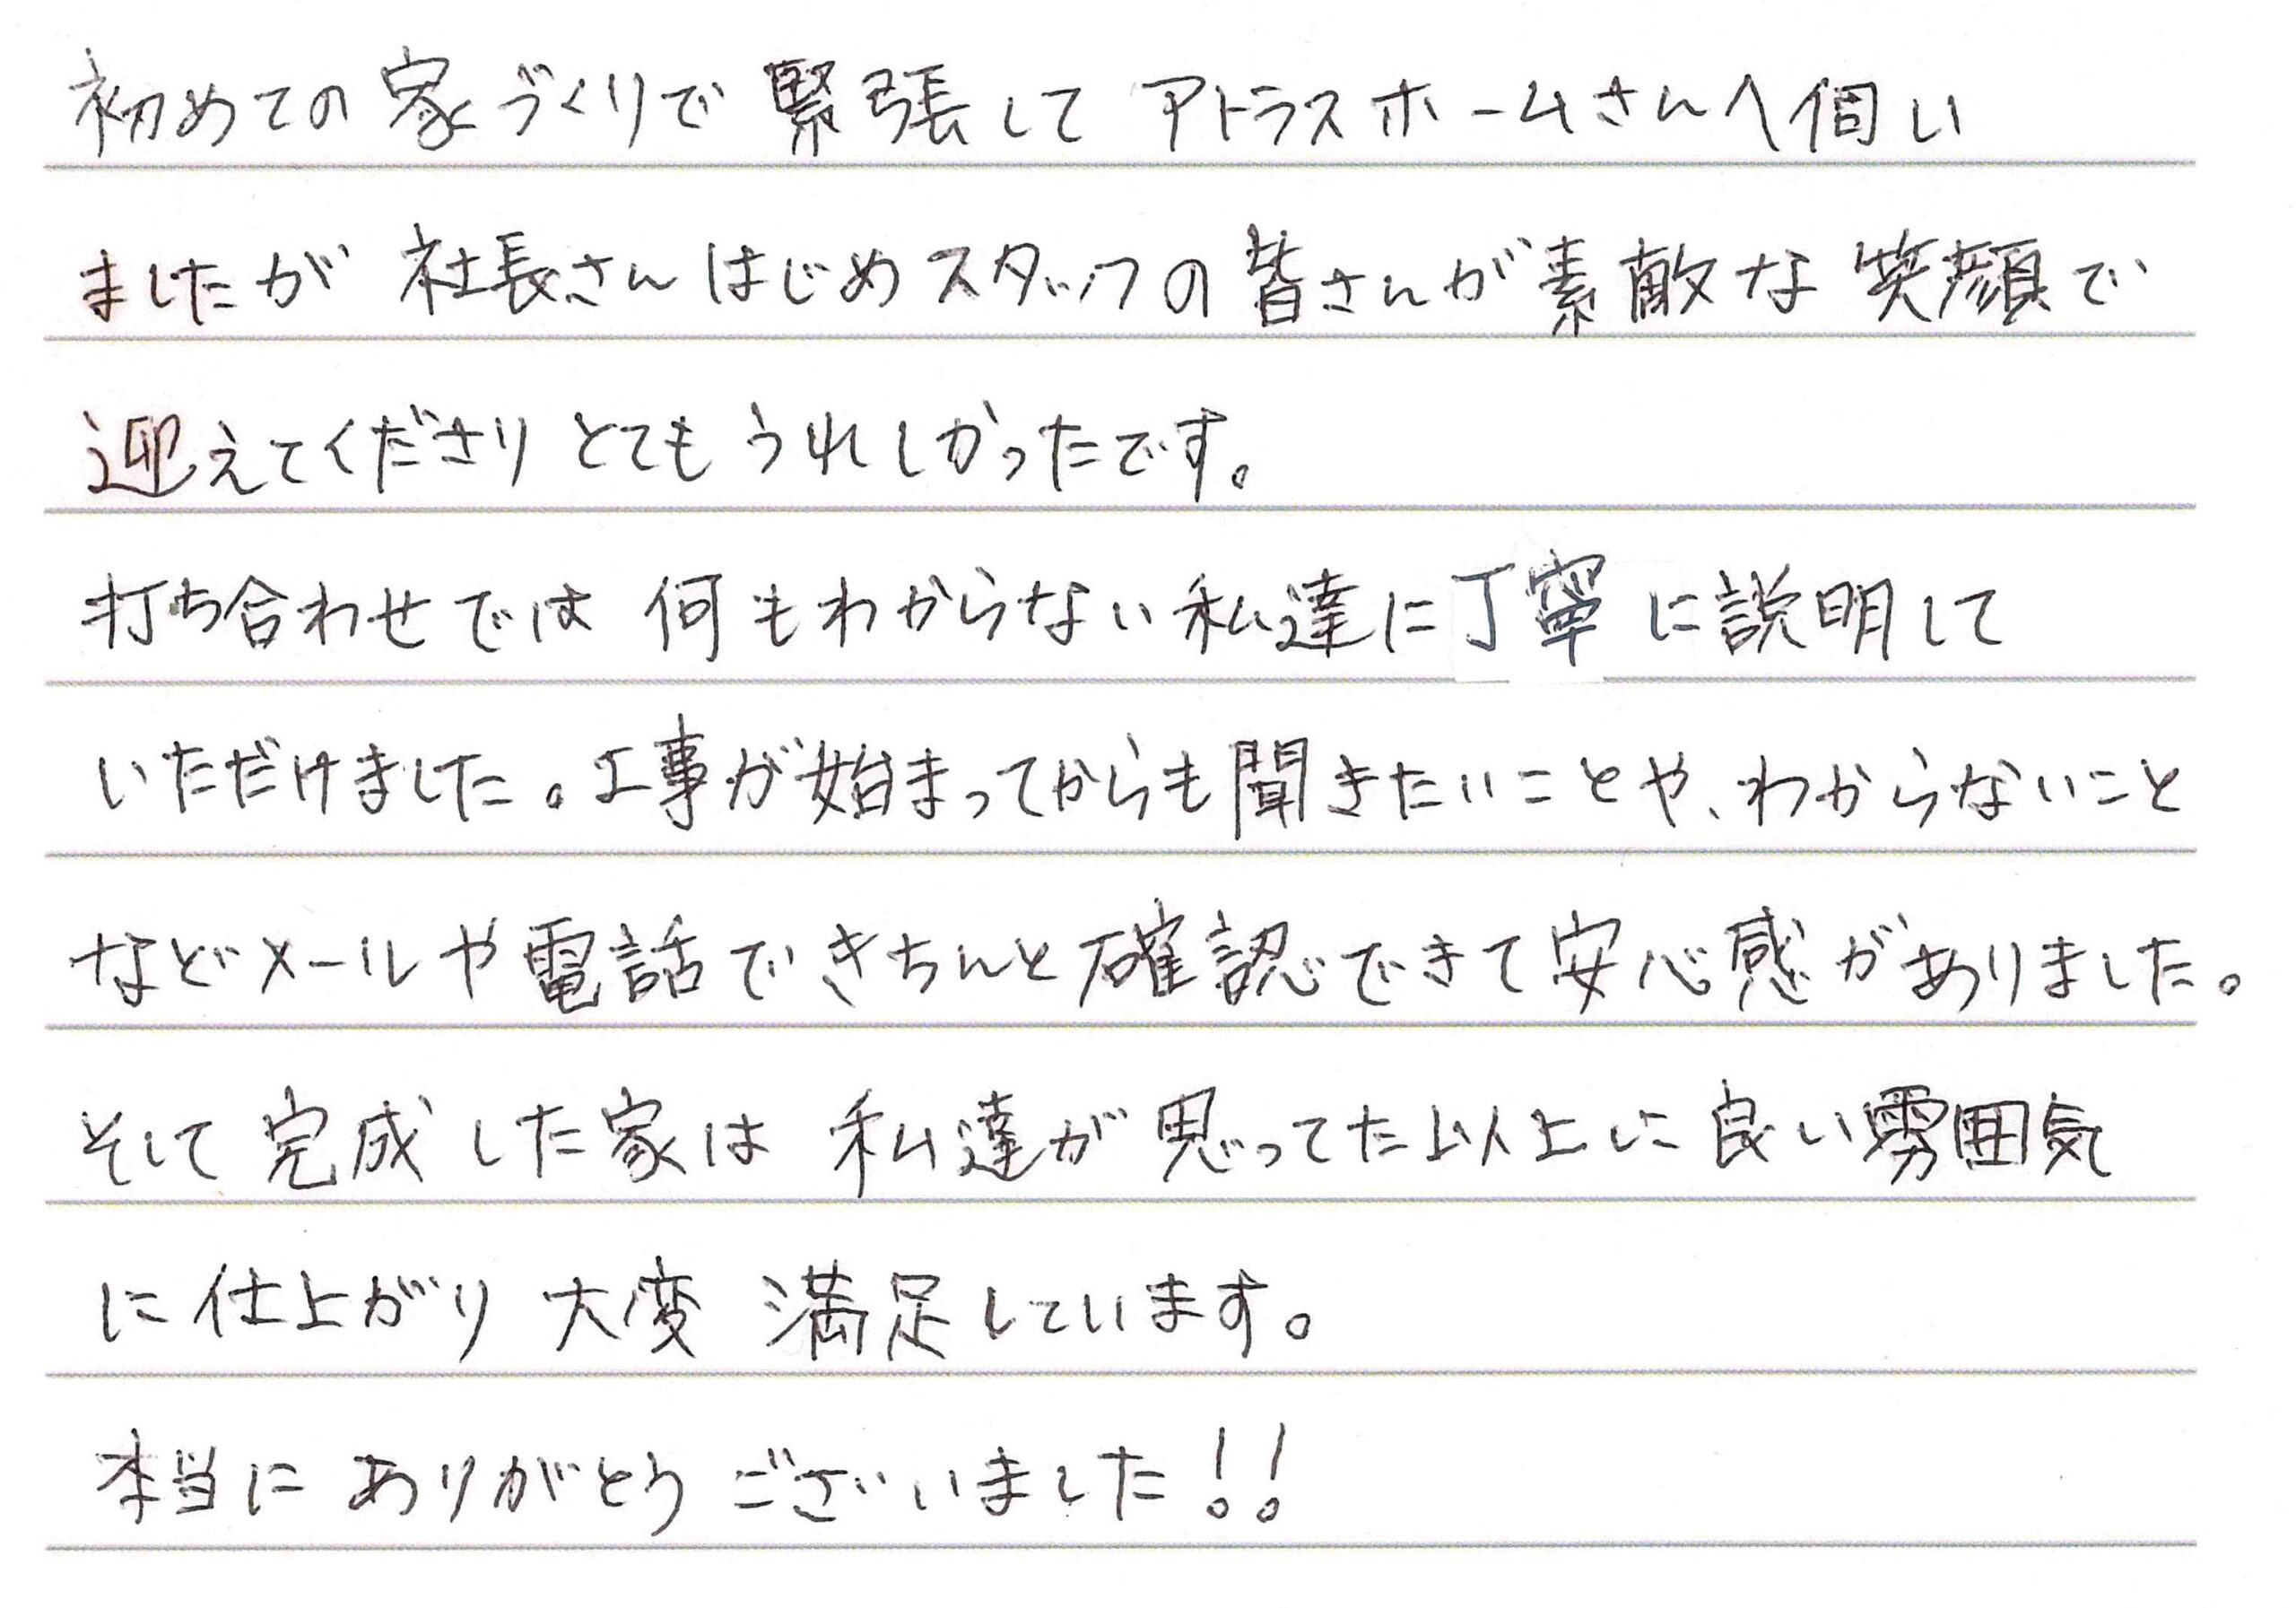 初めての家づくりで緊張して アトラスホームさんへ伺い
ましたが 社長さんはじめスタッフの皆さんが素敵な笑顔で
迎えてくださり とても うれしかったです。
打ち合わせでは 何もわからない私達に丁寧に説明して
いただけました。工事が始まってからも聞きたいことや、わからないこと
などメールや電話できちんと確認できて安心感がありました。
そして完成した家は 私達が思ってた以上に良い雰囲気
に仕上がり 大変 満足しています。
本当に ありがとう ございました!!